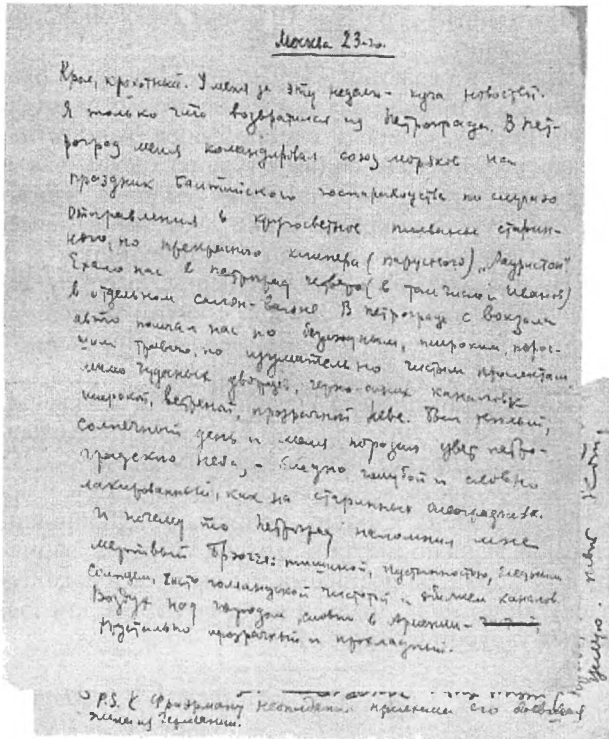 Москва 23-го.
Крол, крохотный. У меня за эту неделю - куча новостей.
Я только что возвратился из Петрограда. В Пет-
роград меня командировал союз моряков на
праздник Балтийского госпароходства по случаю
отправления в кругосветное плаванье старин-
ного, но прекрасного клипера (парусного) „Лауристон"
Ехало нас в Петроград четверо (в том числе и Иванов)
в отдельном салон-вагоне. В Петрограде с вокзала
авто помчал нас по безлюдным, широким, порос-
шим травою, но изумительно чистым проспектам
мимо чудесных дворцов, черно-синих каналов к
широкой, ветреной, прозрачной Неве. Был теплый,
солнечный день и меня поразил цвет петро-
градского неба, - бледно голубой и словно
лакированный, как на старинных олеографиях.
И почему то Петроград напомнил мне
мертвый Брюгге: тишиной, пустынностью, бледным
солнцем, чисто голландской чистотой и обилием каналов.
Воздух над городом, словно в Арктике -
хрустально прозрачный и прохладный.
P.S. К Фраерману неожиданно приехала его боевая
жена из Германии.
целую.